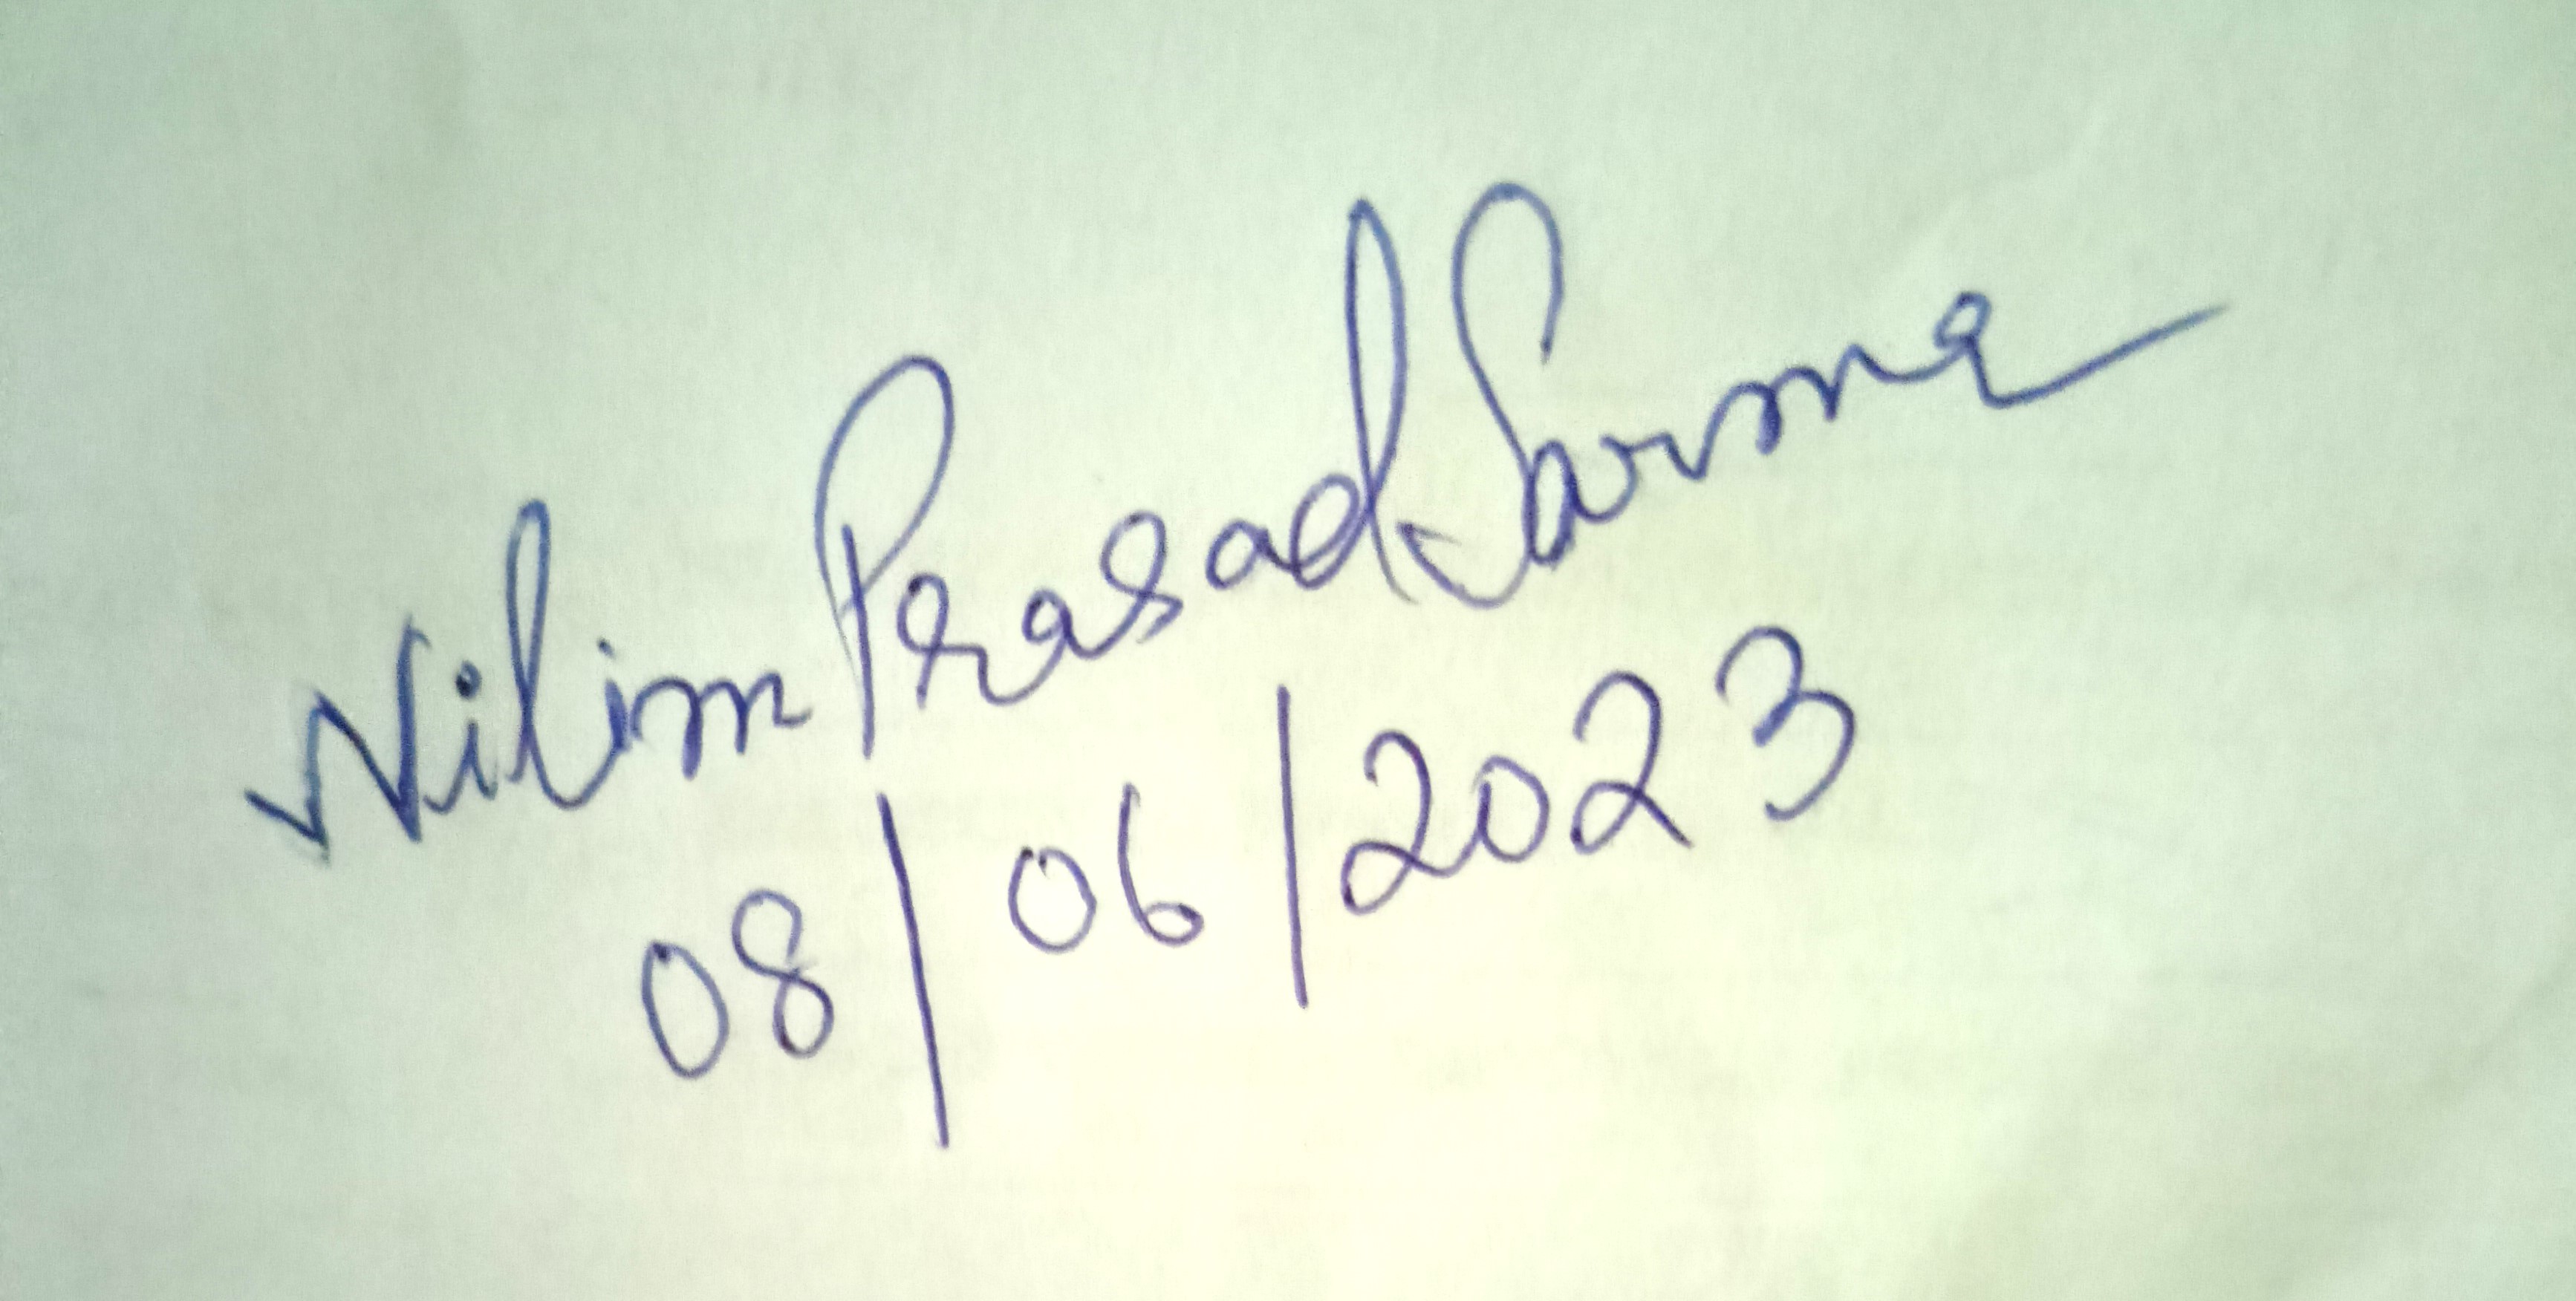 Nilim Prasad Sarma
08/06/2023